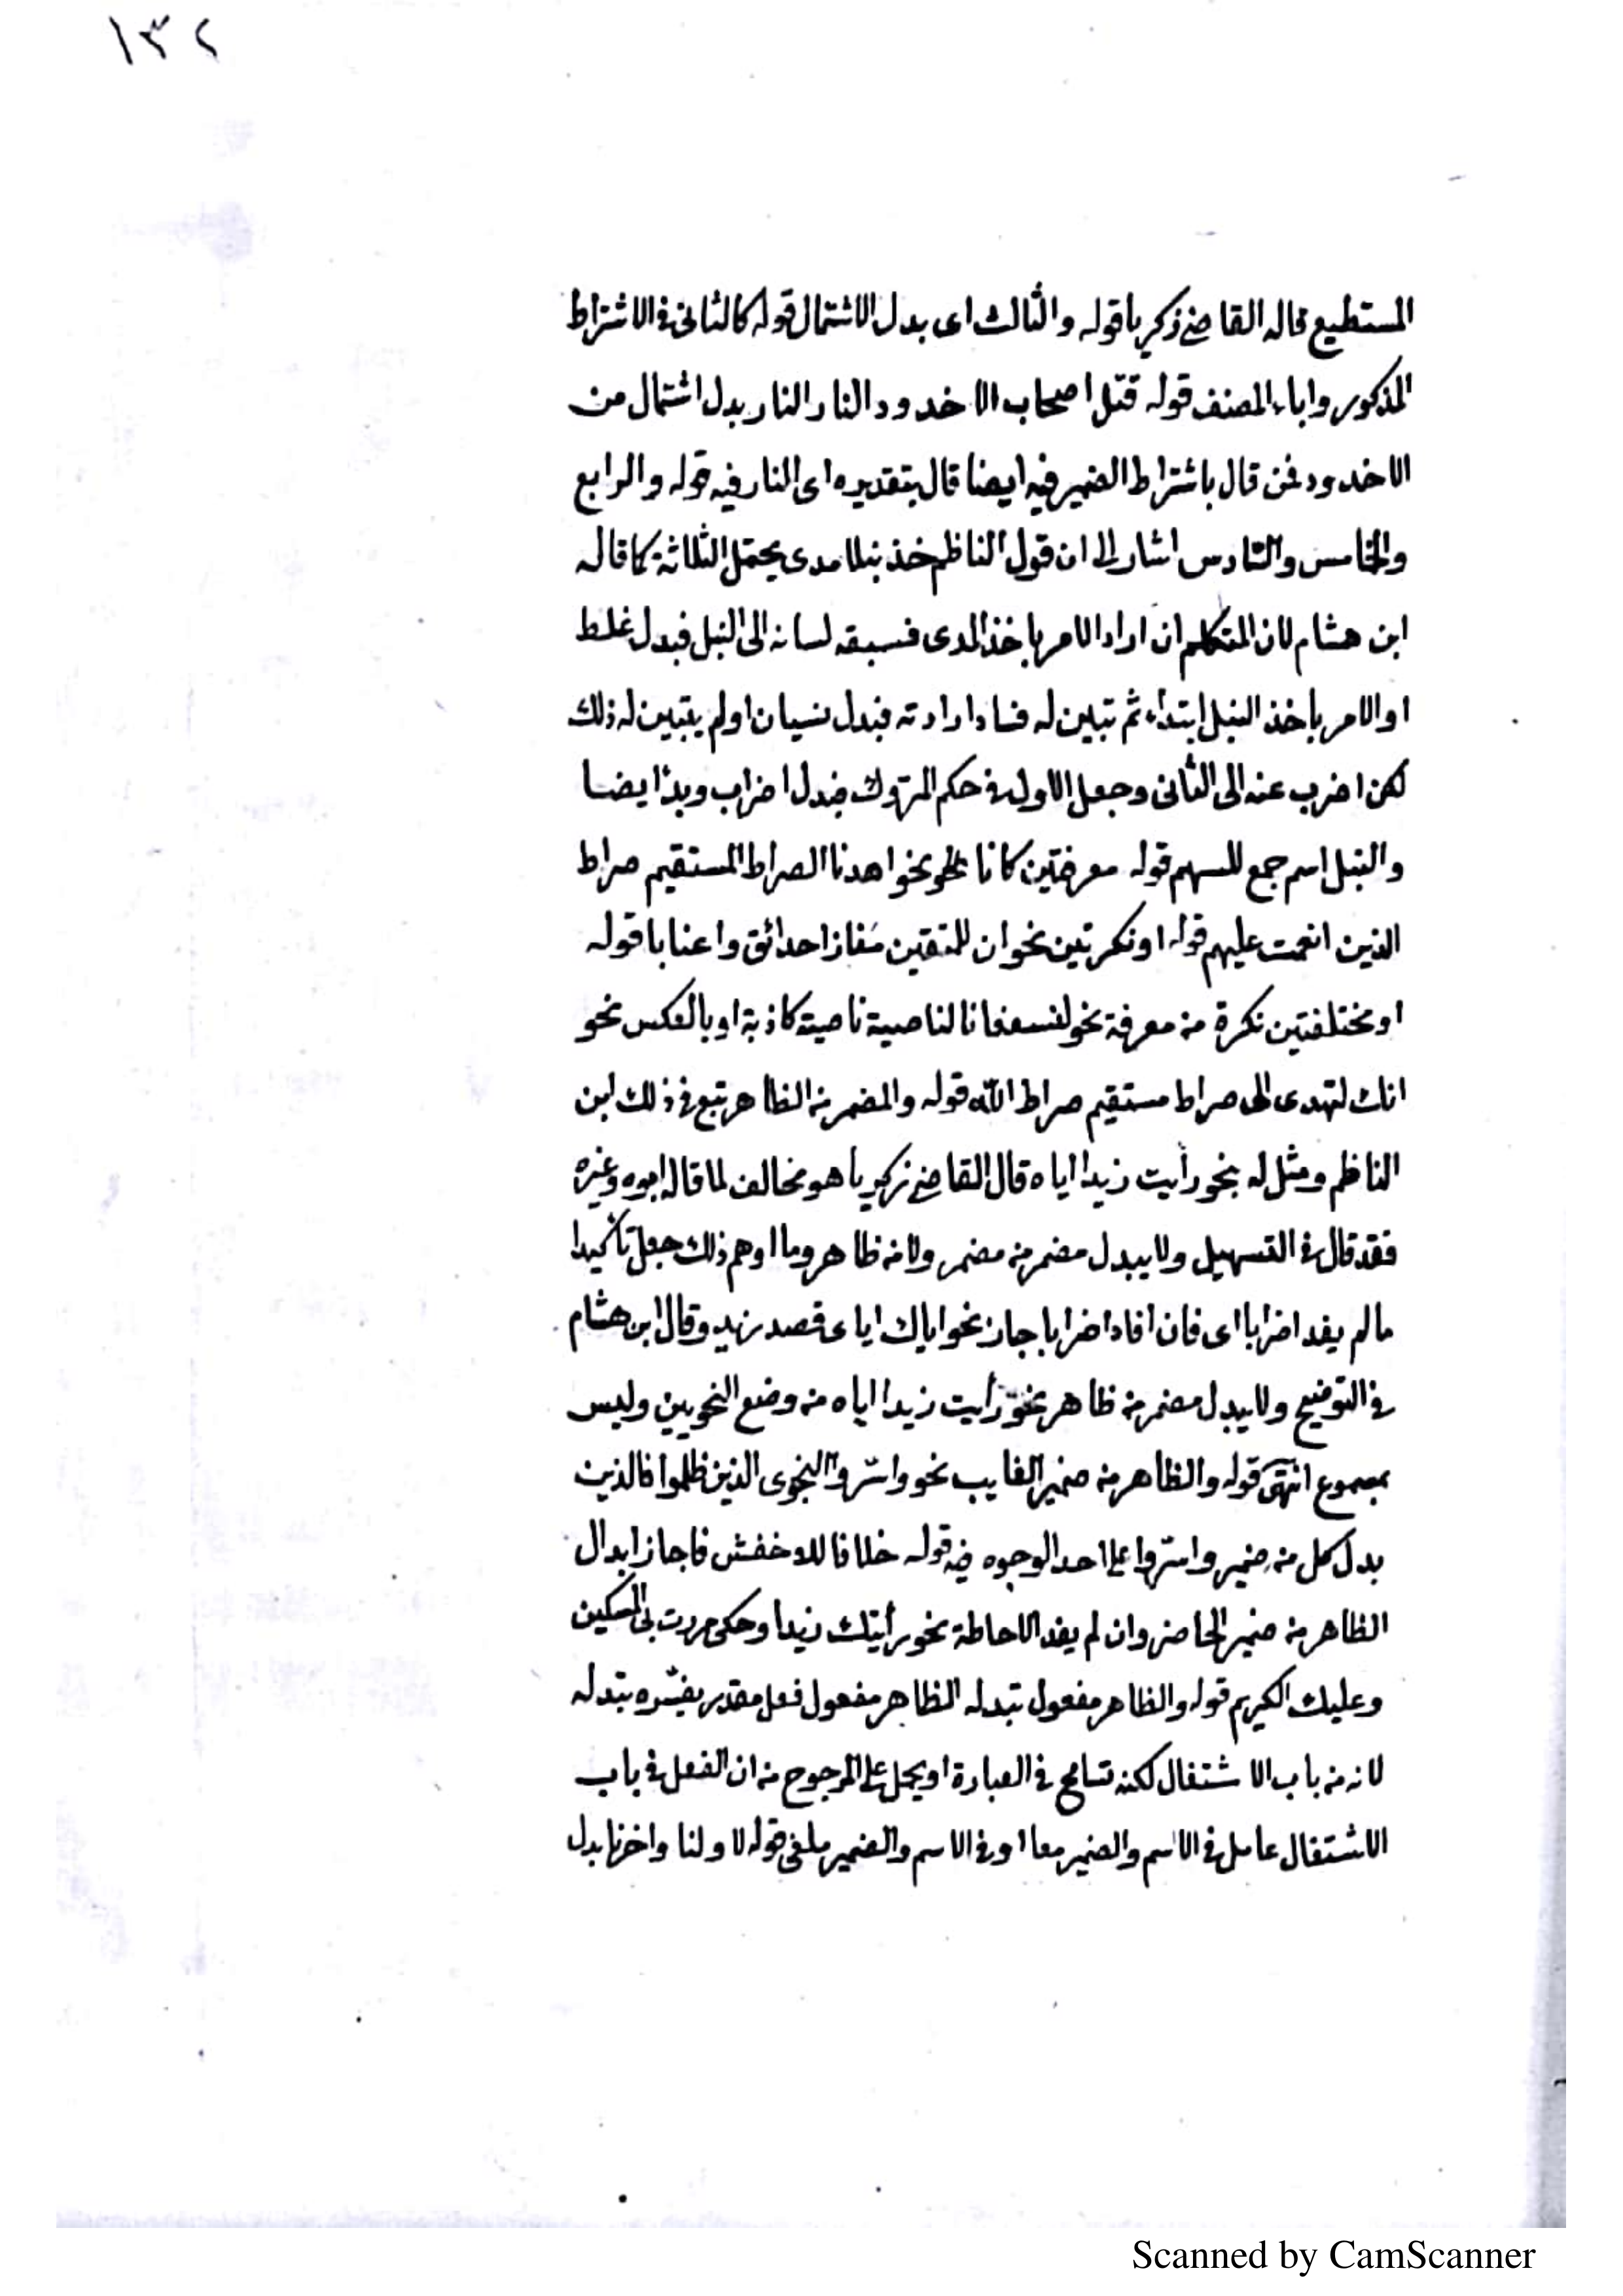 ١٣٢
المستطيع قاله القاضي زكريا قوله والثالث اى بدل الاشتمال قوله كالثانى في الاشتراط
المذكور واباء المصنف قوله قتل اصحاب الاخدود النار النار بدل اشتمال من
الاخدود فمن قال باشتراط الضمير فيه ايضا قال بتقديره اى النار فيه قوله والرابع
والخامس والسّادس اشار الى ان قول الناظم خذ نبلا مدى يحتمل الثلاثة كما قاله
ابن هشام لان المتكلم ان اراد الامر باخذ المدى فسبقه لسانه الى النبل فبدل غلط
او الامر باخذ النبل ابتداء ثم تبين له فساد ارادته فبدل نسيان اولم يتبين له ذلك
لكن اضرب عنه الى الثانى وجعل الاول في حكم المتروك فبدل اضراب وبدأ ايضا
والنبل اسم جمع للسهم قوله معرفتين كانا نحو اهدنا الصراط المستقيم صراط
الذين انعمت عليهم قوله او نكرتين نحو ان للمتقين مَفازا حدائق واعنابا قوله
او مختلفتين نكرة من معرفة نحو لنسفعا نالناصية ناصية كاذبة او بالعكس نحو
انك لتهدى الى صراط مستقيم صراط اللّه قوله والمضمر من الظاهر تبع في ذلك ابن
الناظم ومثل له بنحو رأيت زيدا اياه قال القاضي زكريا هو مخالف لما قاله ابوه وغيره
فقد قال في التسهيل ولا يبدل مضمر من مضمر ولا من ظاهر وما اوهم ذلك جعل تأكيدا
ما لم يفد اضرابا اى فان افاد اضرابا جاز نحو اياك اياى قصد زيد وقال ابن هشام
في التوضيح ولا يبدل مضمر من ظاهر نحو رأيت زيدا اياه من وضع النحويين وليس
بمسموع انتهى قوله والظاهر من ضمير الغايب نحو واسرّوا النجوى الذين ظلموا فالذين
بدل كل من ضمير واسرّوا على احد الوجوه فيه قوله خلافا للاخفش فاجاز ابدال
الظاهر من ضمير الحاضر وان لم يفد الاحاطة نحو رأيتك زيدا وحكى مررت بى المسكين
وعليك الكريم قوله والظاهر مفعول تبدله الظاهر مفعول فعل مقدر يفسّره تبدله
لانه من باب الاشتغال لكنه تسامح في العبارة او يحمل على المرجوح من ان الفعل في باب
الاشتغال عامل في الاسم والضمير معا او في الاسم والضمير ملغى قوله لاولنا واخرنا بدل
Scanned by CamScanner